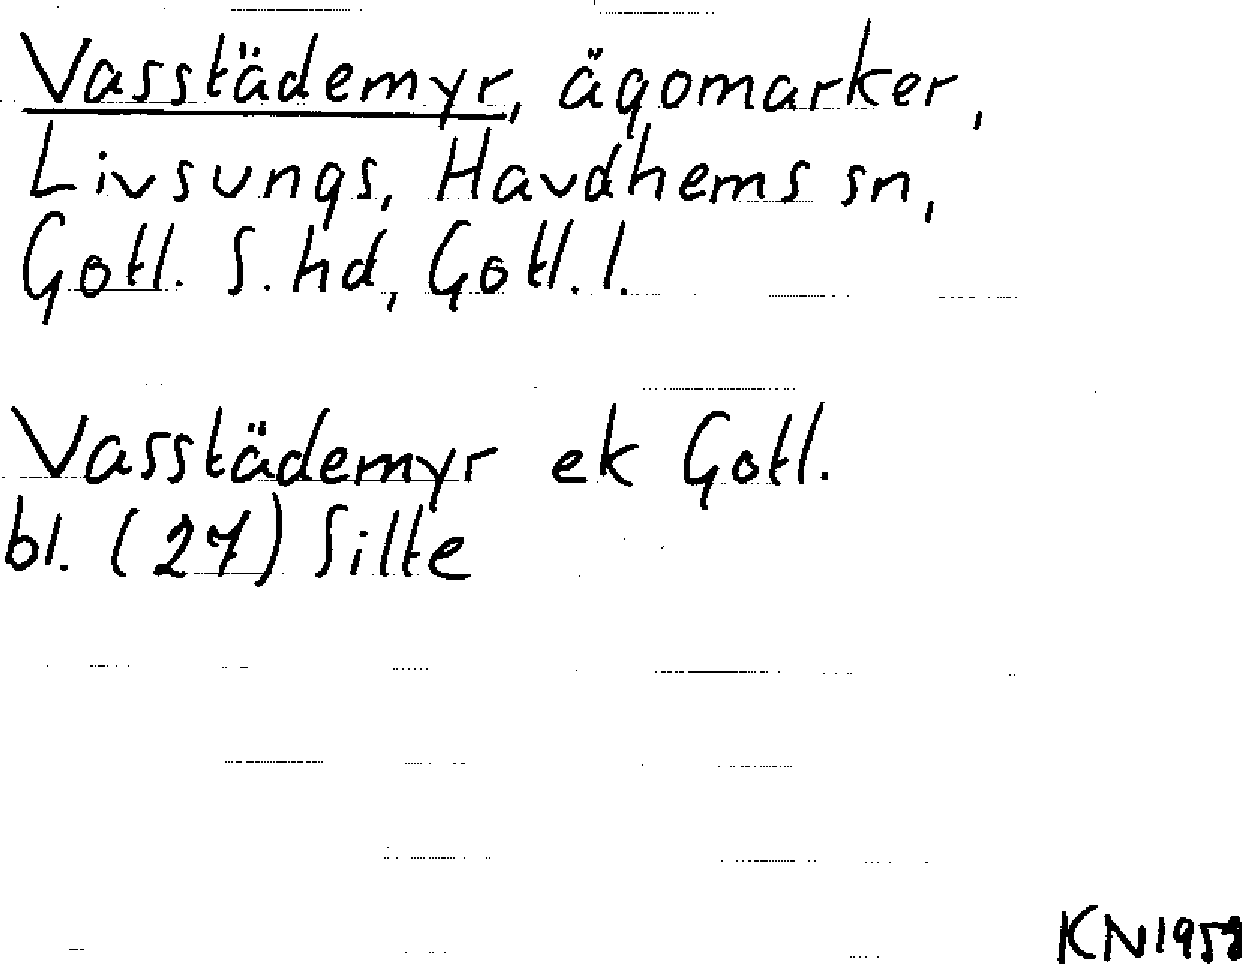 Vasstädemyr, ägomarker,
Livsungs, Havdhems sn,
Gotl. S. hd, Gotl. l.
Vasstädemyr ek Gotl.
bl. (27) Silte
KN 1958